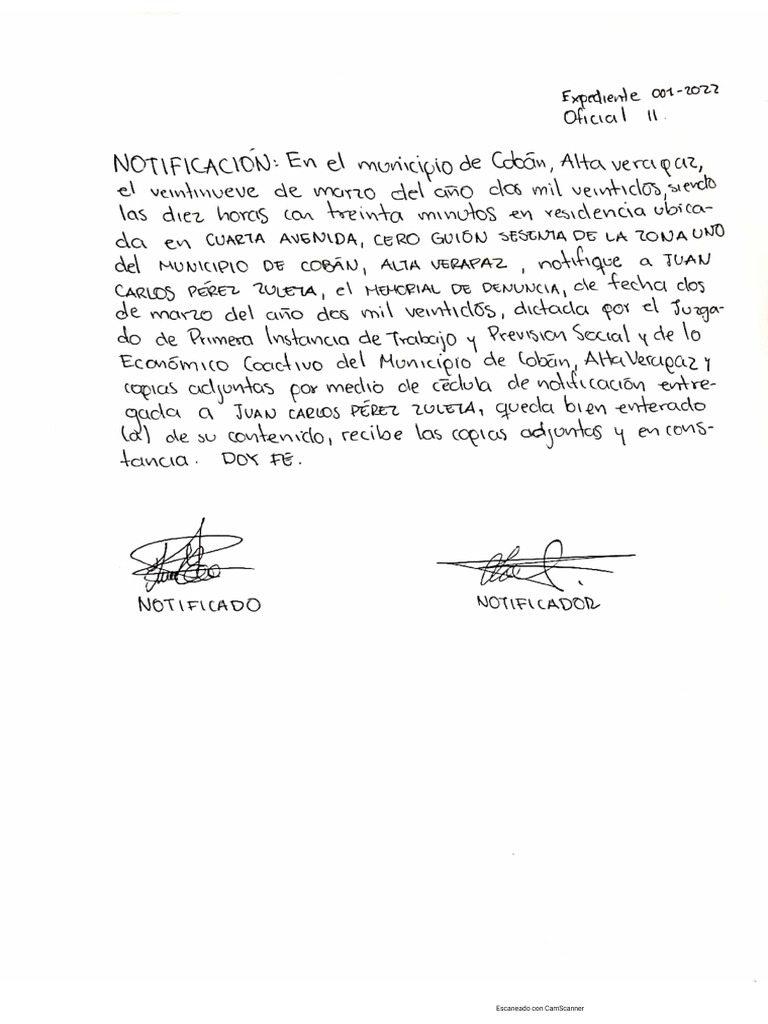 Expediente 001-2022
Oficial II.
NOTIFICACIÓN: En el municipio de Cobán, Alta verapaz,
el veintinueve de marzo del año dos mil veintidos, siendo
las diez horas con treinta minutos en residencia ubica-
da en CUARTA AVENIDA, CERO GUIÓN SESENTA DE LA ZONA UNO
del MUNICIPIO DE COBÁN, ALTA VERAPAZ, notifique a JUAN
CARLOS PÉREZ ZULETA, el MEMORIAL DE DENUNCIA, de fecha dos
de marzo del año dos mil veintidós, dictada por el Juzga-
do de Primera Instancia de Trabajo y Prevision Social y de lo
Económico Coactivo del Municipio de Cobán, Alta Verapaz y
copias adjuntas por medio de cédula de notificación entre-
gada a JUAN CARLOS PÉREZ ZULETA, queda bien enterado
(a) de su contenido, recibe las copias adjuntas y en cons-
tancia. DOY FÉ.
NOTIFICADO
NOTIFICADOR
Escaneado con CamScanner